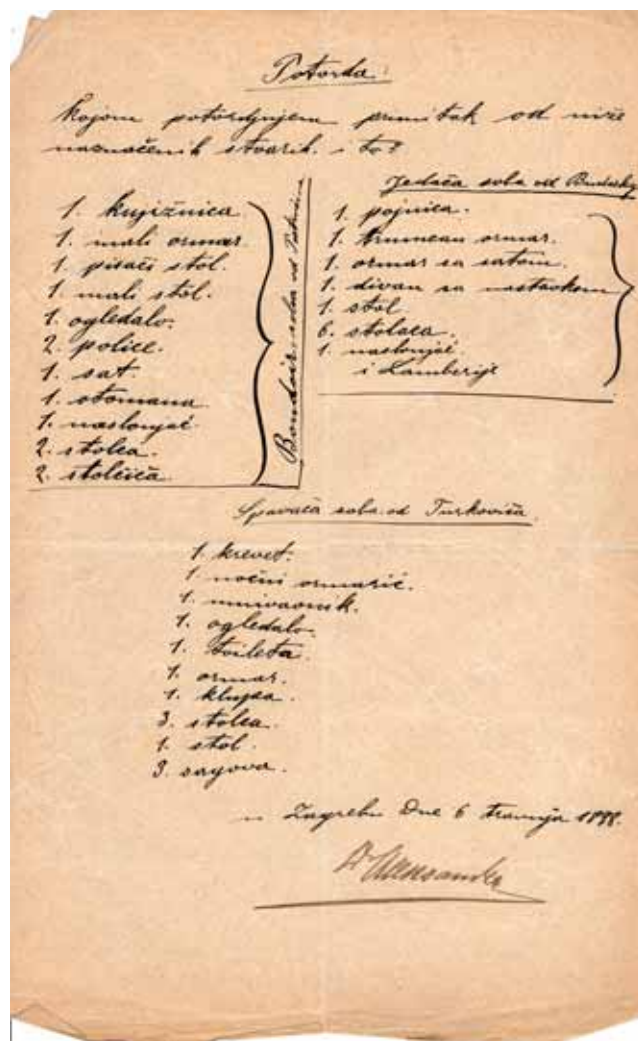 Potvrda:
kojom potvrdjujem primitak od niže
naznačenih stvarih. i to:
1. knjižnica
1. mali ormar
1. pisaći stol.
1. mali stol.
1. ogledalo.
2. police.
1. sat.
1. otomana
1. naslonjač
2. stolca
2. stolčića
Boudoir soba od
Jedaća soba od
1. pojnica.
1. trumeau ormar.
1. ormar sa satom.
1. divan sa nastavkom
1. stol
6. stolaca.
1. naslonjač.
i Lamberije
Spavaća soba od Turkovića.
1. krevet.
1. noćni ormarić.
1. umivaonik.
1. ogledalo.
1. toileta.
1. ormar.
1. klupca.
3. stolca.
1. stol.
3. sagova.
u Zagrebu Dne 6 travnja